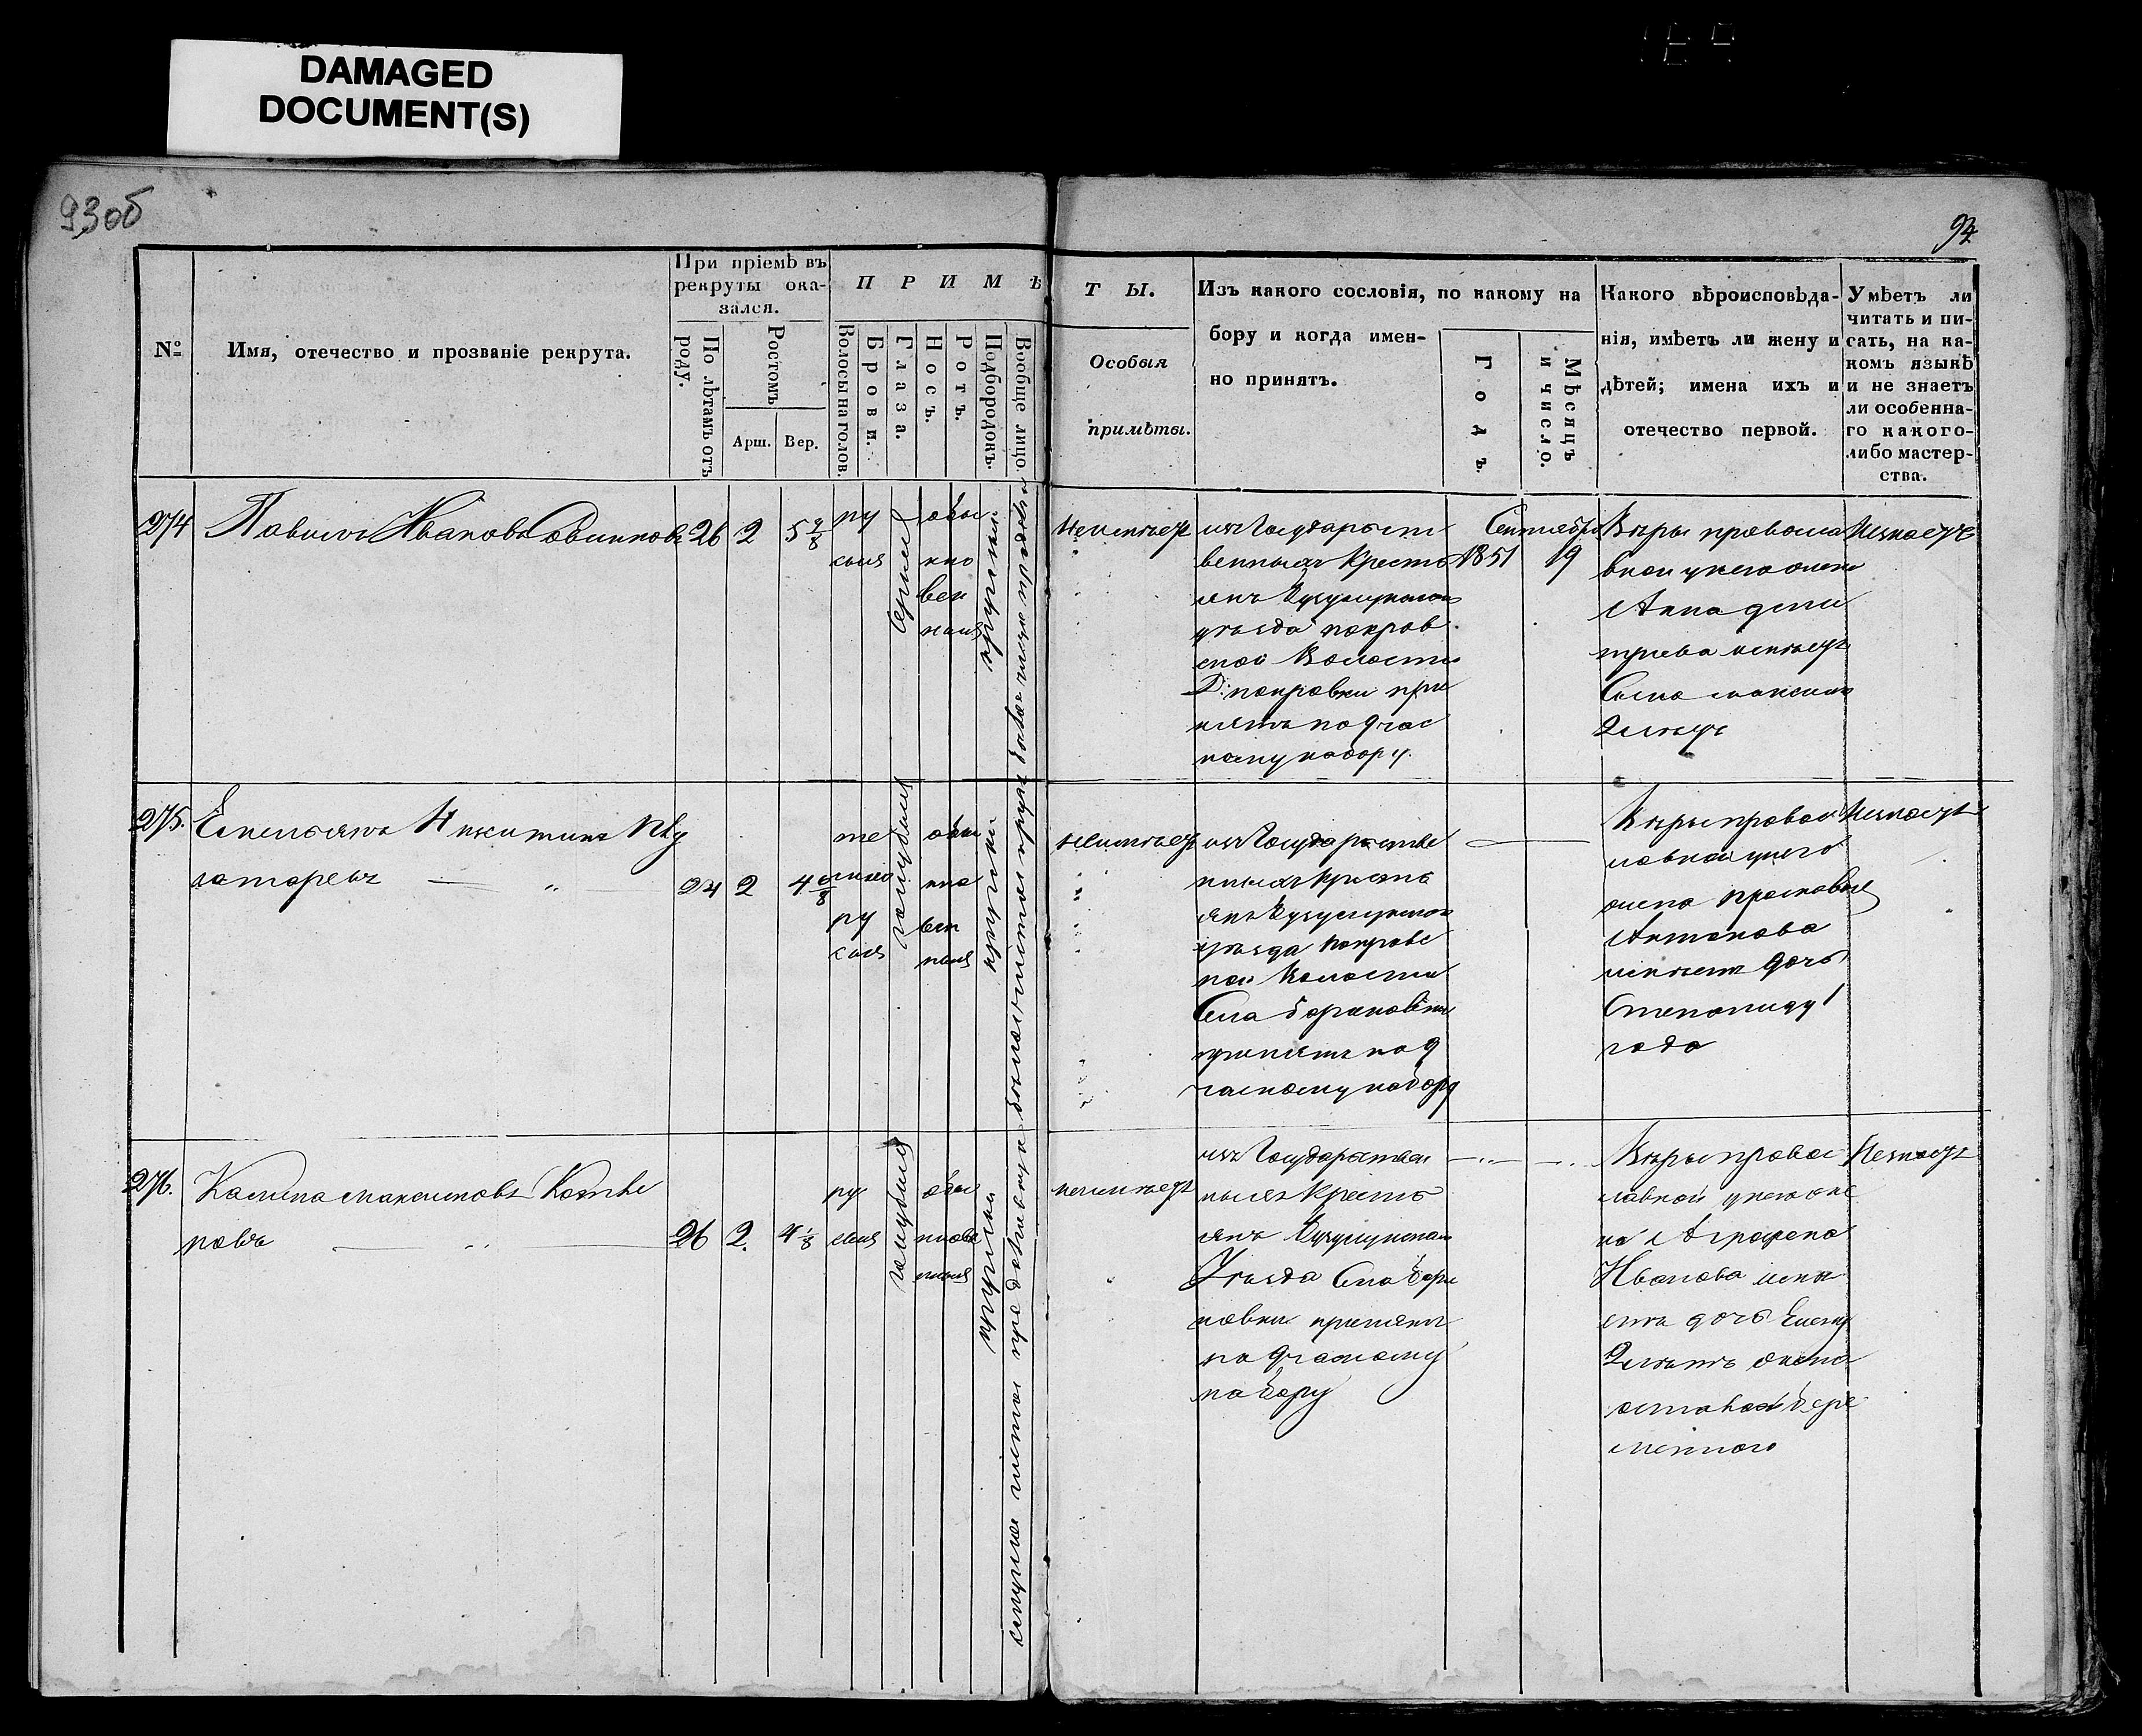 DAMAGED
DOCUMENT(S)
93об
94
№
Имя, отечество и прозваніе рекрута.
При пріемѣ въ
рекруты ока-
зался.
По лѣтамъ отъ
роду.
Ростомъ
Арш.
Вер.
ПРИМѢ
Волосы на голов.
Брови.
Глаза.
Носъ.
Ротъ.
Подбородокъ.
Вообще лицо.
ТЫ.
Особыя
примѣты.
Изъ какого сословія, по какому на
бору и когда имен-
но принятъ.
Годъ.
Мѣсяцъ
и число.
Какого вѣроисповѣда-
нія, имѣетъ ли жену и
дѣтей; имена ихъ и
отечество первой.
Умѣетъ ли
читать и пи-
сать, на ка-
комъ языкѣ
и не знаетъ
ли особенна-
го какого-
либо мастер-
ства.
274
Иванова
26
2
5
ру
сыя
Серыя
обы
кно
вен
ныя
круглый
неимѣетъ
изъ Государст
венныхъ Кресть
янъ Бузулукскаго
уѣзда покров
ской Волости
Д: покровки при
нятъ по 9 час
ному набору.
1851
Сентября
19
Вѣры правосла
вной у него жена
Анна дми
тріева имѣетъ
Сына максима
2 лѣтъ
Незнаетъ
275.
Емельянъ Никитинъ
24
2
4 6/8
те
мно
ру
сыя
голубыя
обы
кно
вен
ныя
круглый
неимѣетъ
изъ Государстве
нныхъ Кресть
янъ Бузулукскаго
уѣзда покровс
кой Волости
Села
принятъ по 9
часному набору
Вѣры правос
лавной у него
жена прасковья
Антонова
имѣетъ дочь
Степаниду 1
года
Незнаетъ
276.
Калина максимовъ
новъ
26
2.
4 1/8
ру
сыя
голубыя
обы
кнове
нныя
круглый
неимѣетъ
изъ Государствен
ныхъ Кресть
янъ Бузулукскаго
Уѣзда Села
новки принятъ
по 9 часному
набору
Вѣры правос
лавной у него же
на Аграфена
Иванова имѣ
етъ дочь Елену
2 лѣтъ жена
осталась бере
менною
Незнаетъ